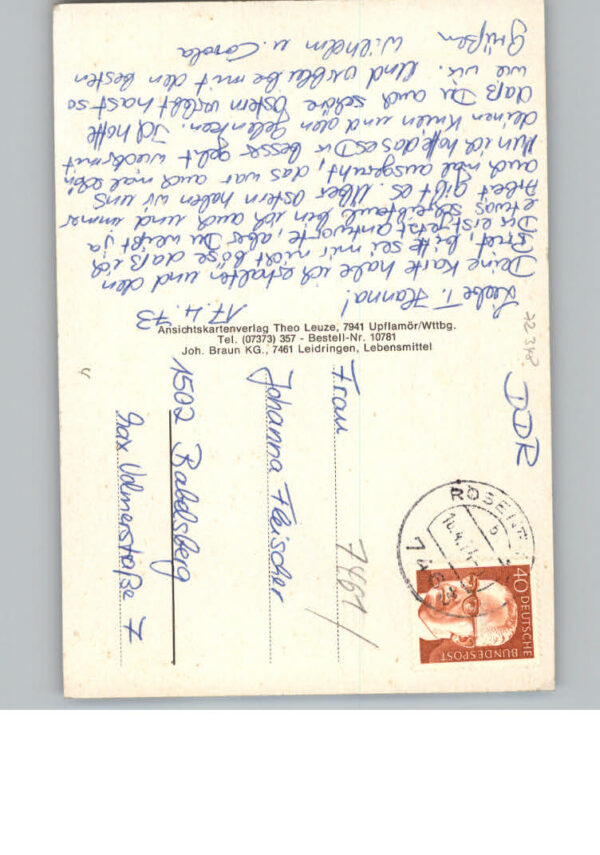 17.4.73
Liebe T. Hanna!
Deine Karte habe ich erhalten und den
Brief, bitte sei mir nicht böse daß ich
Dir erst jetzt antworte, aber Du weißt ja
etwas schreibfaul bin ich auch und immer
Arbeit gibt es. Über Ostern haben wir uns
auch mal ausgeruht, das war auch mal schön
Nun ich hoffe das es Dir besser geht wieder mit
deinen Knien und den Gelenken. Ich hoffe
daß Du auch schöne Ostern verlebt hast so
wie wir. Und verbleibe mit den besten
Grüßen Wilhelm u. Carola
Ansichtskartenverlag Theo Leuze, 7941 Upflamör/Wttbg.
Tel. (07373) 357 - Bestell-Nr. 10781
Joh. Braun KG., 7461 Leidringen, Lebensmittel
DDR
Frau
Johanna Fleischer
1502 Babelsberg
Max Volmerstraße 7
7461/
ROSEN
746
40 DEUTSCHE
BUNDESPOST